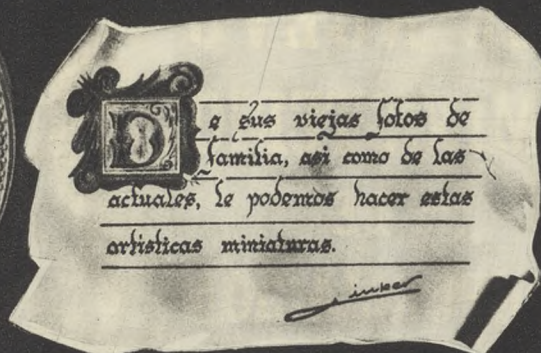 De sus viejas fotos de
familia, asi como de las
actuales, le podemos hacer estas
artisticas miniaturas.